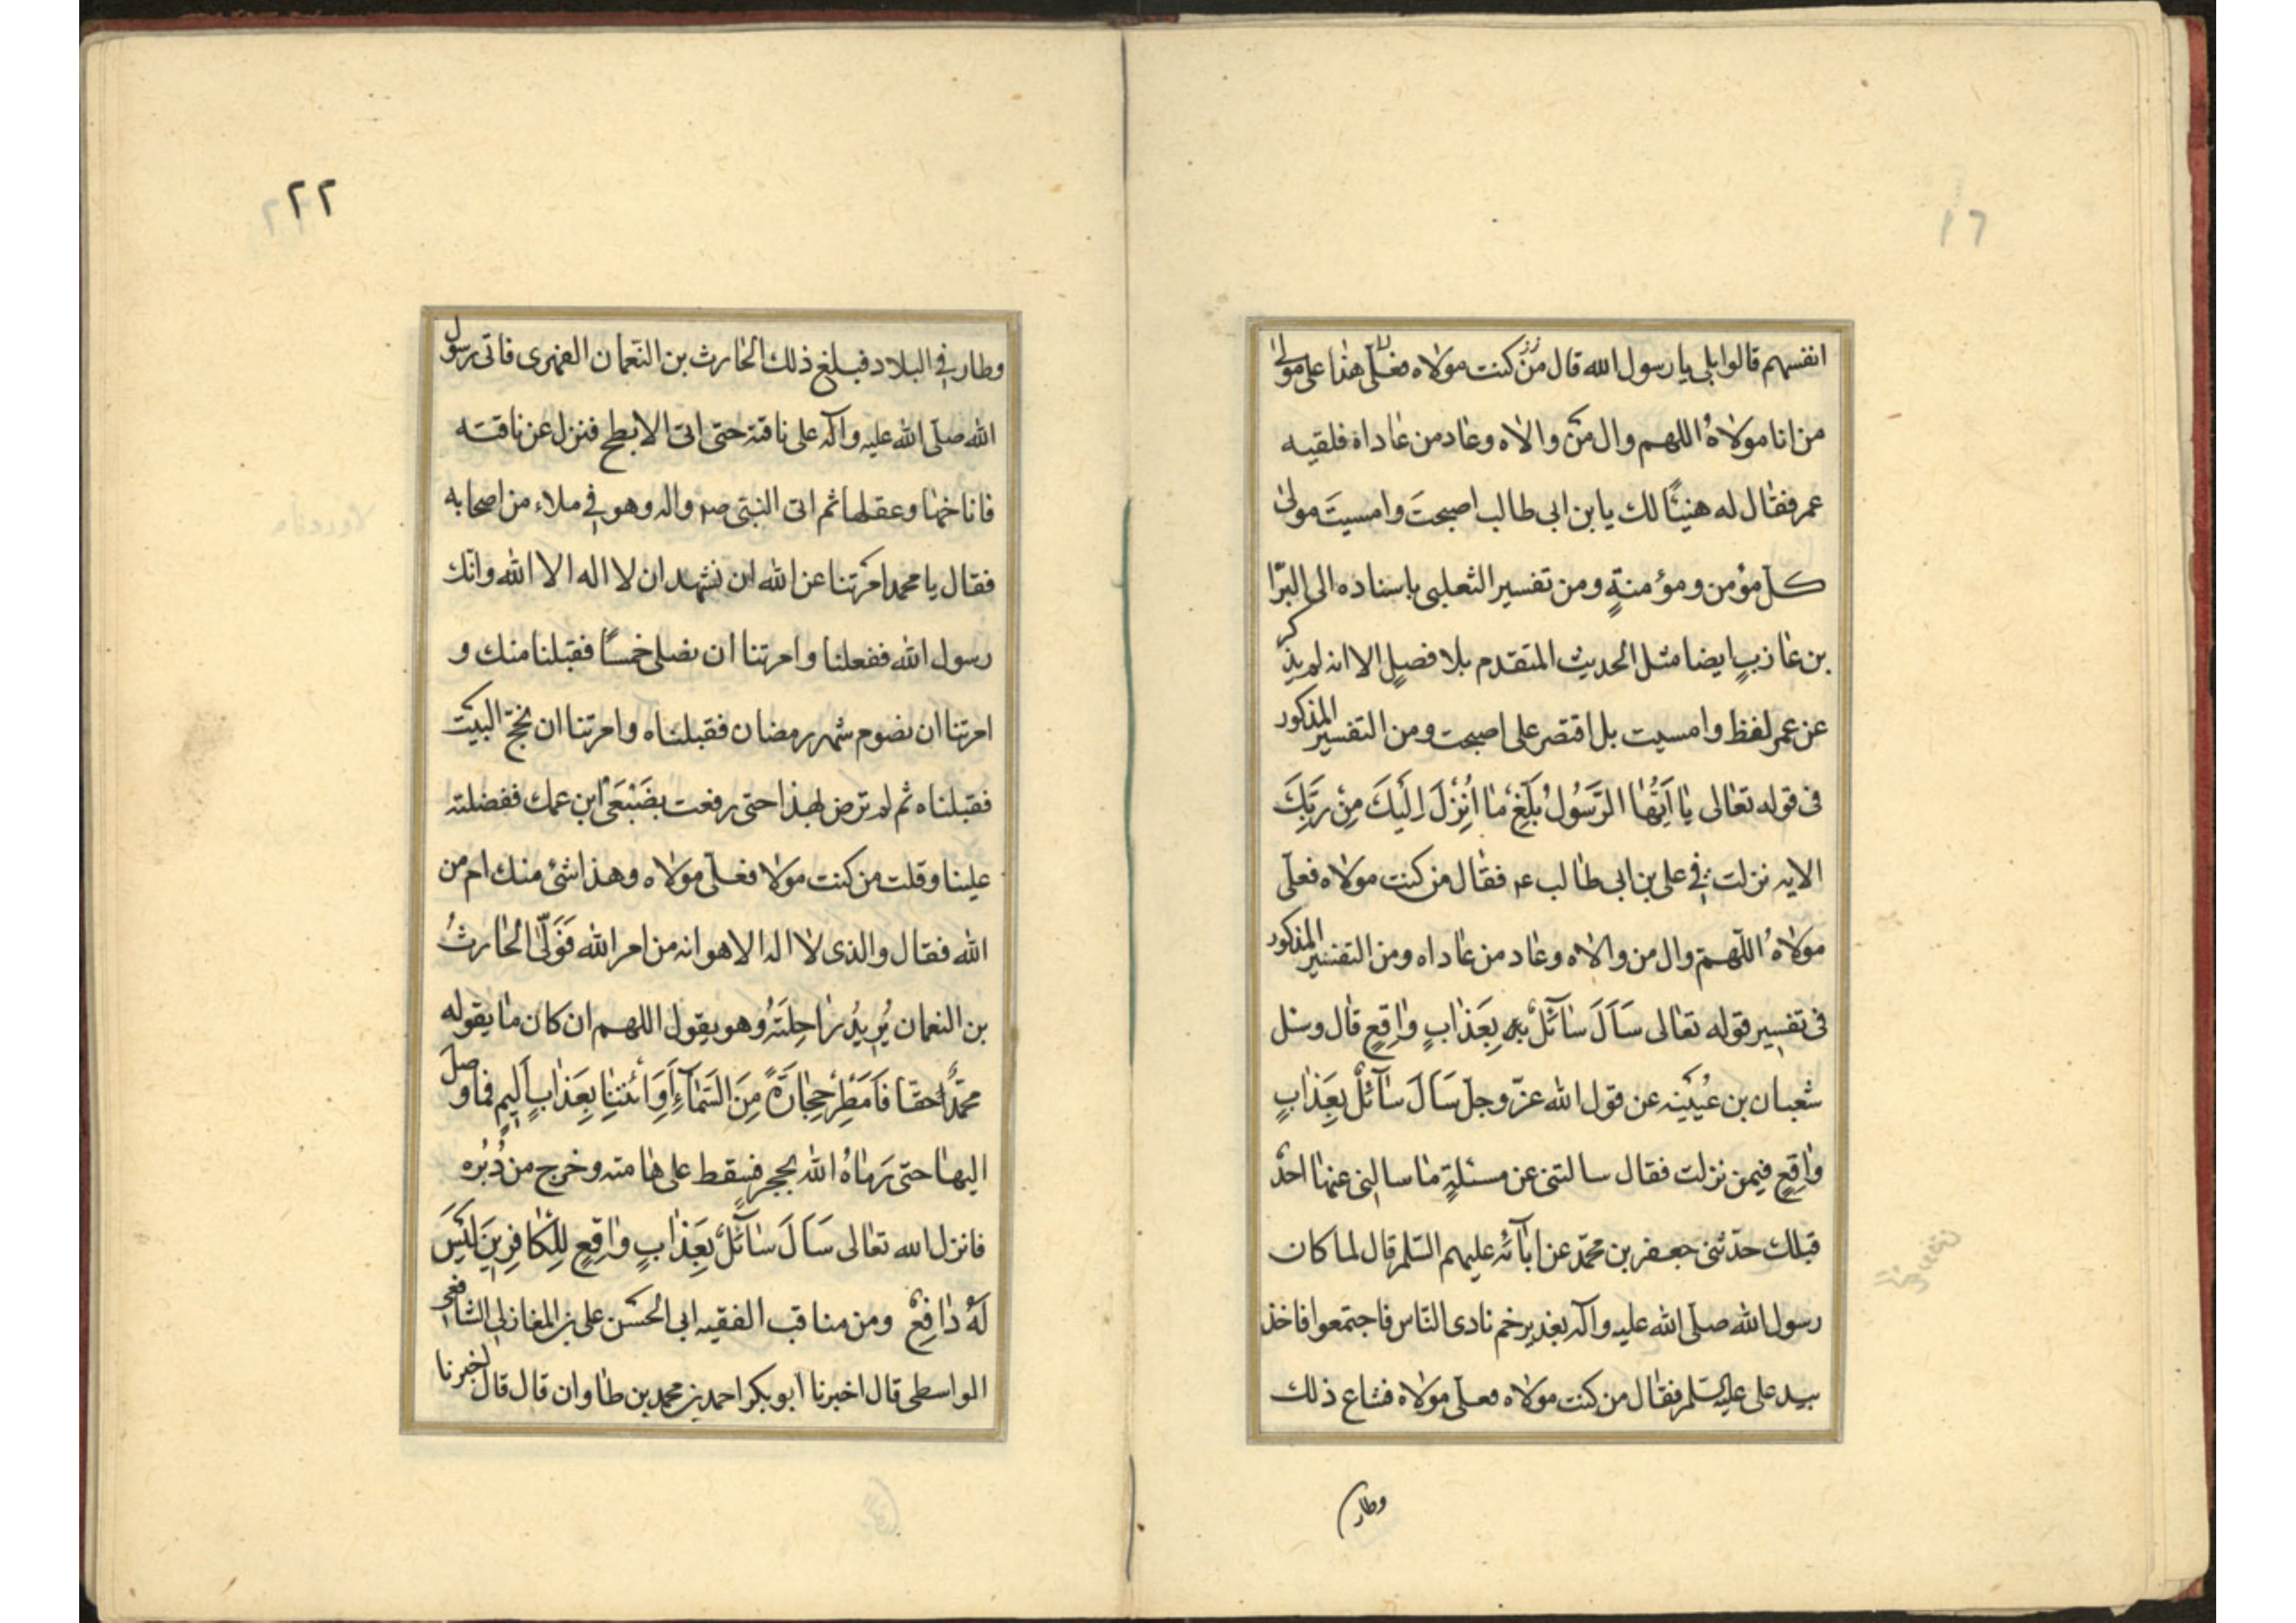 انفسهم قالوا بلى يا رسول الله قال من كنت مولاه فعلى هذا على مولى
من انا مولاه اللهم وال من والاه وعاد من عاداه فلقيه
عمر فقال له هنيئًا لك يا بن ابى طالب اصبحتَ وامسيتَ مولى
كل مؤمن ومؤمنةٍ ومن تفسير الثعلبى باسناده الى البرّا
بن عازبٍ ايضا مثل الحديث المتقدم بلا فصلٍ الا انه لم يذكر
عن عمر لفظ وامسيت بل اقتصر على اصبحت ومن التفسير المذكور
فى قوله تعالى يا اَيُّهَا الرَّسُولُ بَلِّغْ مٰا اُنْزِلَ اِلَيْكَ مِنْ رَبِّكَ
الايه نزلت فى على بن ابى طالب ع فقال من كنت مولاه فعلى
مولاهُ اللّهم وال من والاه وعاد من عاداه ومن التفسير المذكور
فى تفسير قوله تعالى سَاَلَ سٰآئلٌ بِعَذٰابٍ وٰاقِعٍ قال وسئل
شعبان بن عُيَيْنِه عن قول الله عزّ وجلّ سَاَلَ سٰآئلٌ بِعَذٰابٍ
وٰاقِعٍ فيمن نزلت فقال سالتنى عن مسئلةٍ مٰا سالنى عنهٰا احدٌ
قبلك حدّثنى جعفر بن محمّد عن ابٰآئه عليهم السّلم قال لما كان
رسول الله صلّى الله عليه وآله بغدير خم نادى النّاس فاجتمعوا فاخذ
بيد على عليه السّلم فقال من كنت مولاه فعلى مولاه فشاع ذلك
وطار
٢٢
وطار فى البلاد فبلغ ذلك الحارث بن النعمان الفهرى فاتى رسول
الله صلّى الله عليه وآله على ناقته حتى اتى الابطح فنزل عن ناقته
فاناخهٰا وعقلها ثم اتى النبّى ص واله وهو فى ملاء من اصحابه
فقال يا محمد امرتنا عن الله ان نشهد ان لا اله الا الله وانّك
رسول الله ففعلنا وامرتنا ان نصلى خمسًا فقبلنا منك و
امرتنا ان نصوم شهر رمضان فقبلناه وامرتنا ان نحجّ البيت
فقبلناه ثم لم ترض بهذا حتى رفعت بضَبْعَىْ ابن عمك ففضلته
علينا وقلت من كنت مولا فعلى مولاه وهذا شئ منك ام من
الله فقال والذى لا اله الا هو انه من امر الله فَوَلّى الحٰارثُ
بن النعمان يُرِيدُ رٰاحِلَتَهُ وهو يقول اللهم ان كان مٰا يقوله
محمّدٌ حقا فَاَمْطِرْ حِجٰارَةً مِنَ السَّمٰآءِ اَوِ ائْتِنٰا بِعَذٰابٍ اَلِيمٍ فما وصل
اليهٰا حتى رَمٰاهُ الله بحجرٍ فسقط على هٰامته وخرج من دُبُره
فانزل الله تعالى سَاَلَ سٰآئلٌ بِعَذٰابٍ وٰاقِعٍ لِلْكٰافِرِينَ لَيْسَ
لَهُ دٰافِعٌ ومن مناقب الفقيه ابى الحسن على بن المغازلى الشافعى
الواسطى قال اخبرنا ابو بكر احمد بن محمد بن طاوان قال قال اخبرنا